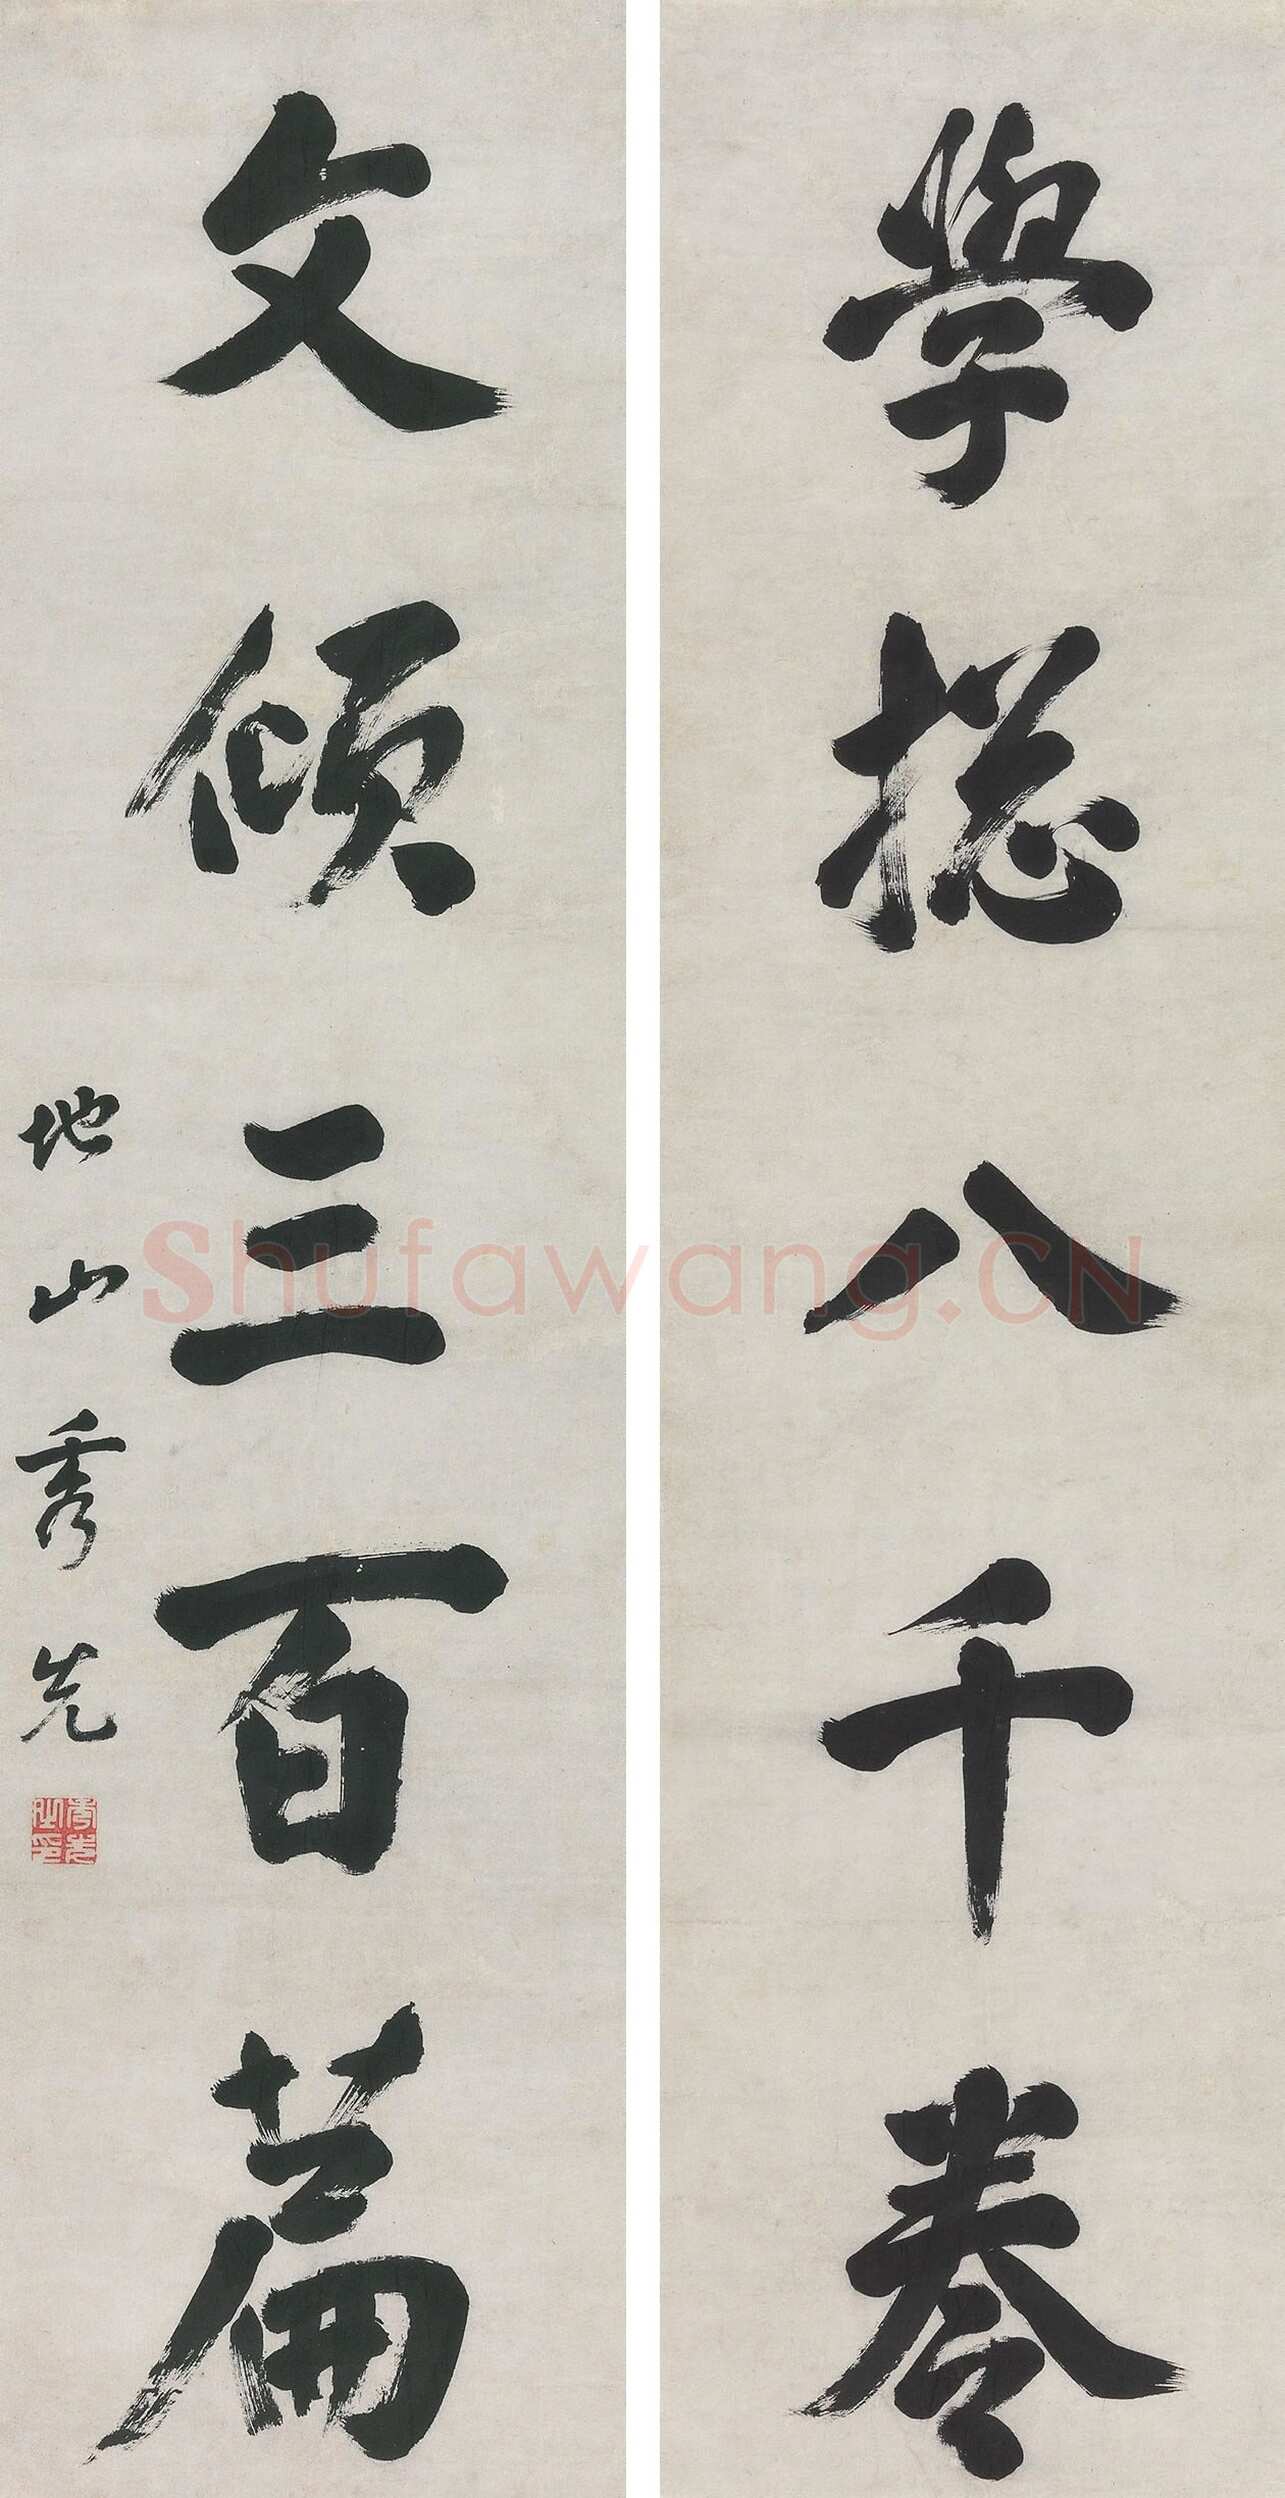 學捴八千卷
文傾三百篇
地山秀先
Shufawang.CN